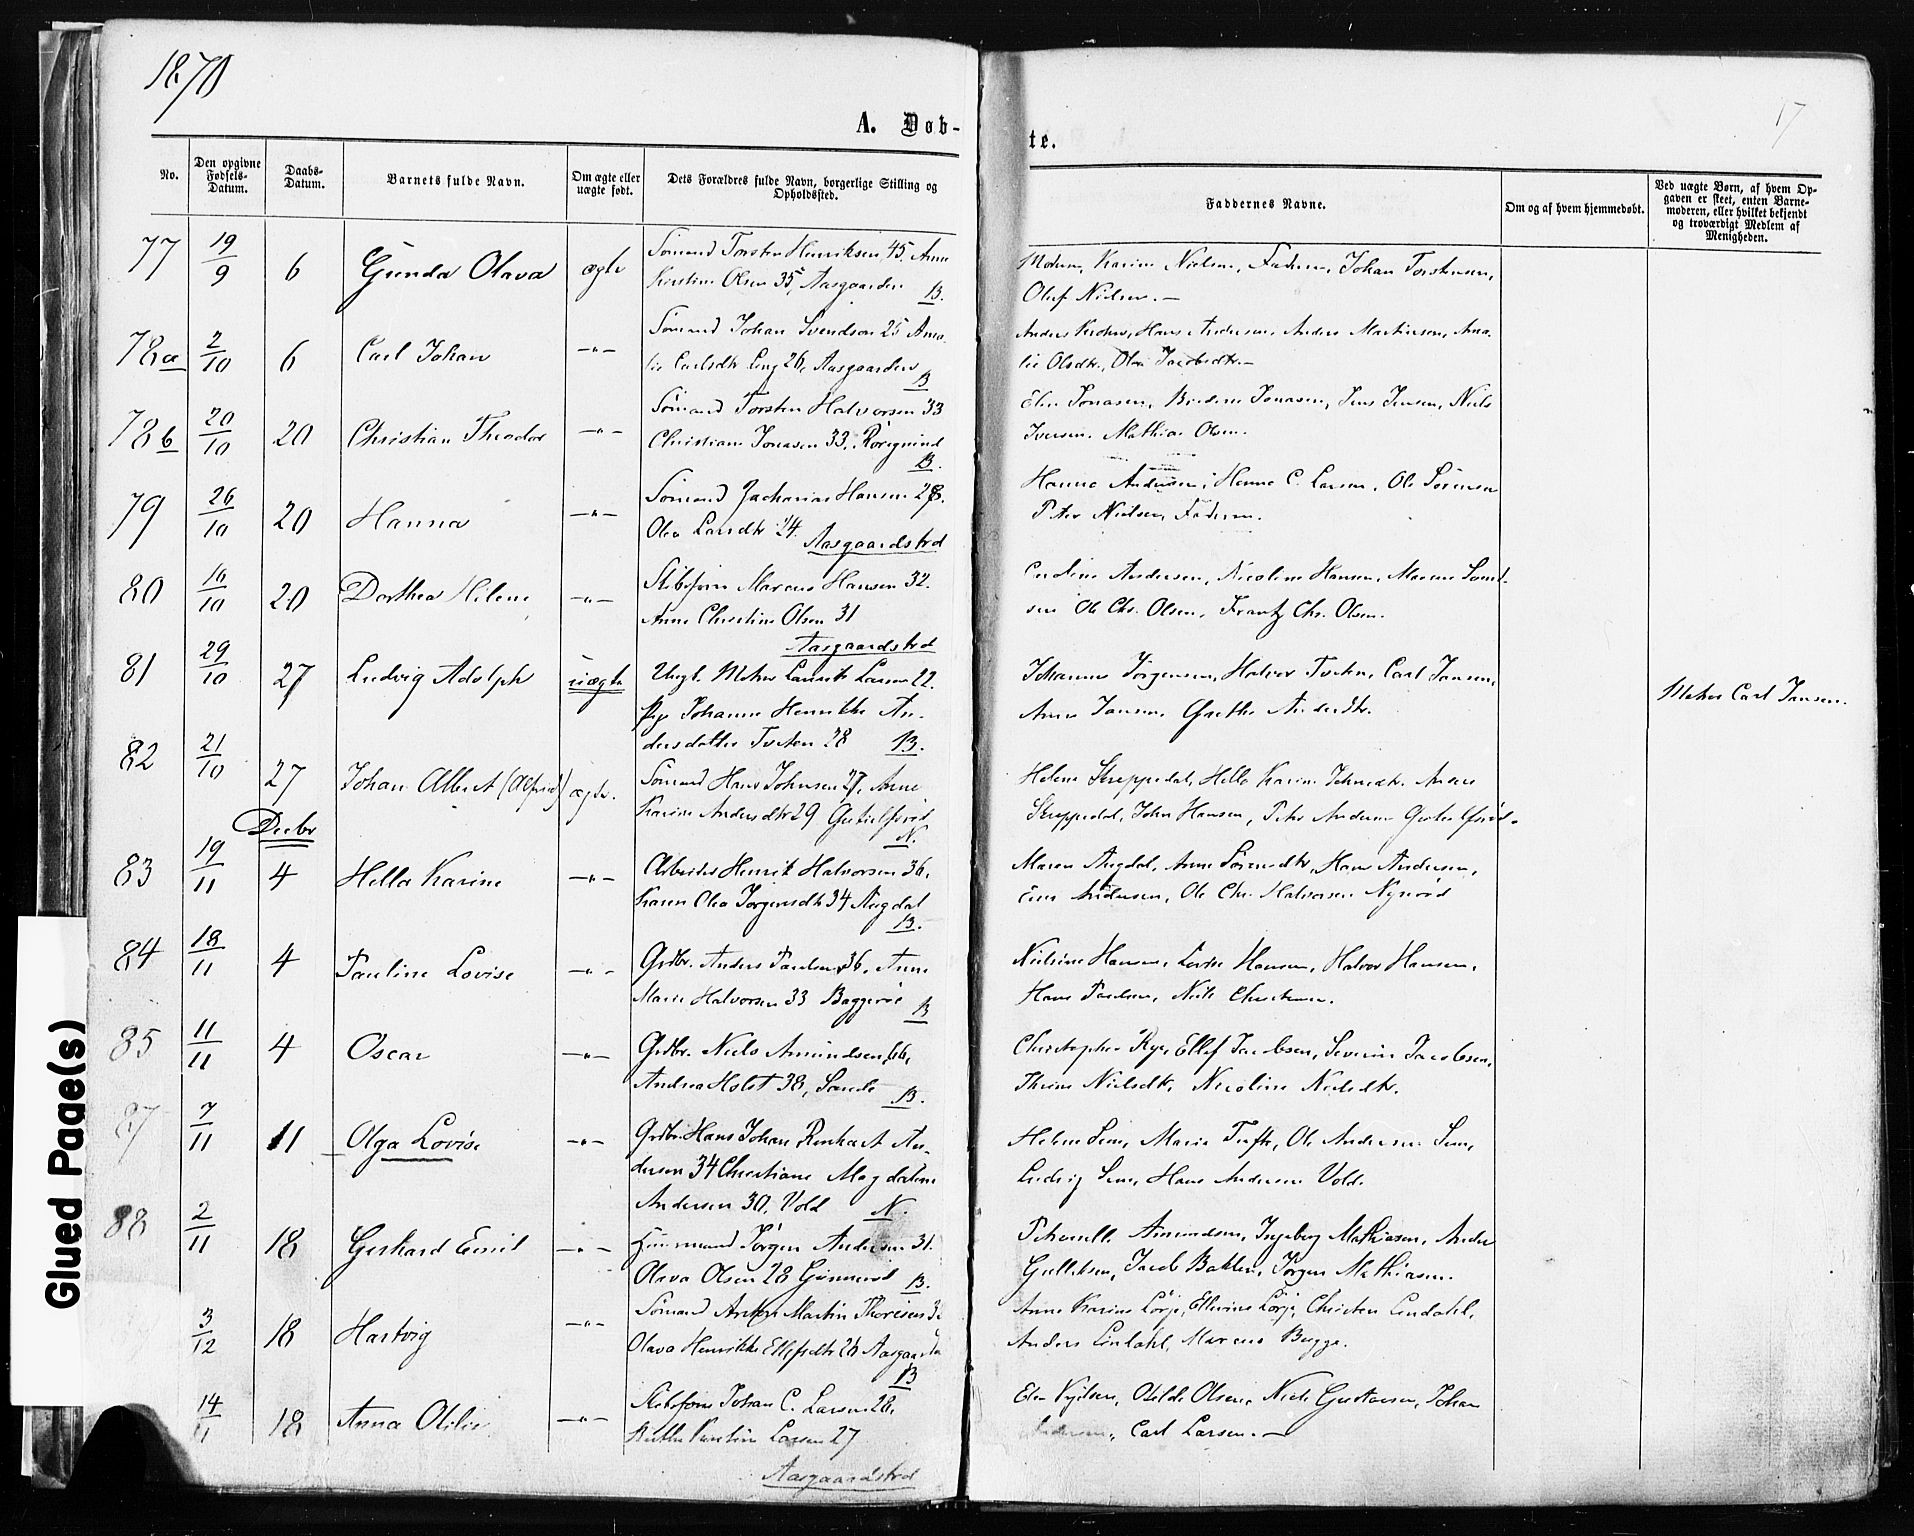 1870
17
A. Døb-
te.
No.
Den opgivne Fødsels-Datum.
Daabs-Datum.
Barnets fulde Navn.
Om ægte eller uægte født.
Dets Forældres fulde Navn, borgerlige Stilling og Opholdssted.
Faddernes Navne.
Om og af hvem hjemmedøbt.
Ved uægte Børn, af hvem Op-
gaven er skeet, enten Barne-
moderen, eller hvilket bekjendt
og troværdigt Medlem af
Menigheden.
77 19/9 6 Gunda Olava ægte Sømand Torsten Henriksen 45, Anne
Kirstine Olsen 35, Aasgaarden B.
Moderen, Karine Nielsen, Faderen, Johan Torstensen,
Oluf Nielsen.—
78a 2/10 6 Carl Johan —"— Sømand Johan Svendsen 25 Ama-
lie Carlsdtr 26, Aasgaarden B
Anders Hans Andersen, Anders Martinsen, Ama-
lie Olsdtr., Olea Jacobsdtr.—
78b 20/10 20 Christian Theodor —"— Sømand Torsten Halvorsen 33
Christiane Jonasen 33, B.
Jonasen, Jonasen, Jens Jensen, Niels
Iversen. Mathias Olsen.
79 26/10 20 Hanna —"— Sømand Zacharias Hansen 28.
Olea Larsdtr 24. Aasgaardstrd
Hanna Andersen, Hanna C. Larsen, Ole Sørensen
Peter Nielsen, Faderen.
80 16/10 20 Dorthea Milene —"— Skibsfører Marcus Hansen 32.
Anne Christine Olsen 31
Aasgaardstrd
Caroline Andersen, Nicoline Hansen, Maren Svend-
sen Ole Chr. Olsen, Frantz Chr. Olsen.
81 29/10 27 Ludvig Adolph uægte Ungk. Laurits Larsen 22.
Pige Johanne Henrikke An-
dersdatter 28 B.
Johannes Jørgensen, Halvor Carl Jansen,
Anne Jansen, Grethe Andersdtr.
Carl Jansen.
82 21/10 27 Johan Albert (Alfred) ægte. Sømand Hans Johnsen 27, Anne
Karine Andersdtr 29 N.
Helene Skreppedal, Hella Karine Anders
Skreppedal, John Hansen, Peter Andersen
Decbr
83 19/11 4 Hella Karine —"— Arbeider Henrik Halvorsen 36,
Karen Olea Jørgensdtr 34 Augdal
B.
Maren Augdal, Anne Sørensdtr, Hans Andersen,
Andersen, Ole Chr. Halvorsen Nyerød
84 18/11 4 Pauline Lovise —"— Grdbr. Anders Paulsen 36, Anne
Marie Halvorsen 33 Baggerøe B
Nielsine Hansen, Lovise Hansen, Halvor Hansen,
Hans Paulsen, Niels Christensen.
85 11/11 4 Oscar —"— Grdbr. Niels Amundsen 66,
Andrea Holst 38, Sande B.
Christopher Rye, Ellef Jacobsen, Severin Jacobsen,
Thrine Nielsdtr, Nicoline Nielsdtr.
87 7/11 11 Olga Lovise —"— Grdbr. Hans Johan Renhart An-
dersen 34 Christiane Magdalene
Andersen 30, Vold N.
Helene Sem, Maria Tufte, Ole Andersen Sem,
Ludvig Sem, Hans Andersen Vold.
88 2/11 18 Gerhard Emil —"— Jørgen Andersen 31.
Olava Olsen 28 B.
Petronelle Amundsen, Ingeborg Mathiasen, Anders
Gulliksen, Jacob Bakken, Jørgen Mathiasen.
3/12 18 Hartvig —"— Sømand Anton Martin Thoresen
Olava Henrikke Ellefsdtr 28 B
Anne Karine Lørje, Ellevine Lørje, Christen Lindahl,
Anders Lindahl, Marcus Bugge.
14/11 18 Anna Otilie —"— Skibsfører Johan C. Larsen 28,
Larsen 27
Aasgaardstrd
Olsen, Niels Gustavsen, Johan
Andersen, Carl Larsen.—
Glued Page(s)